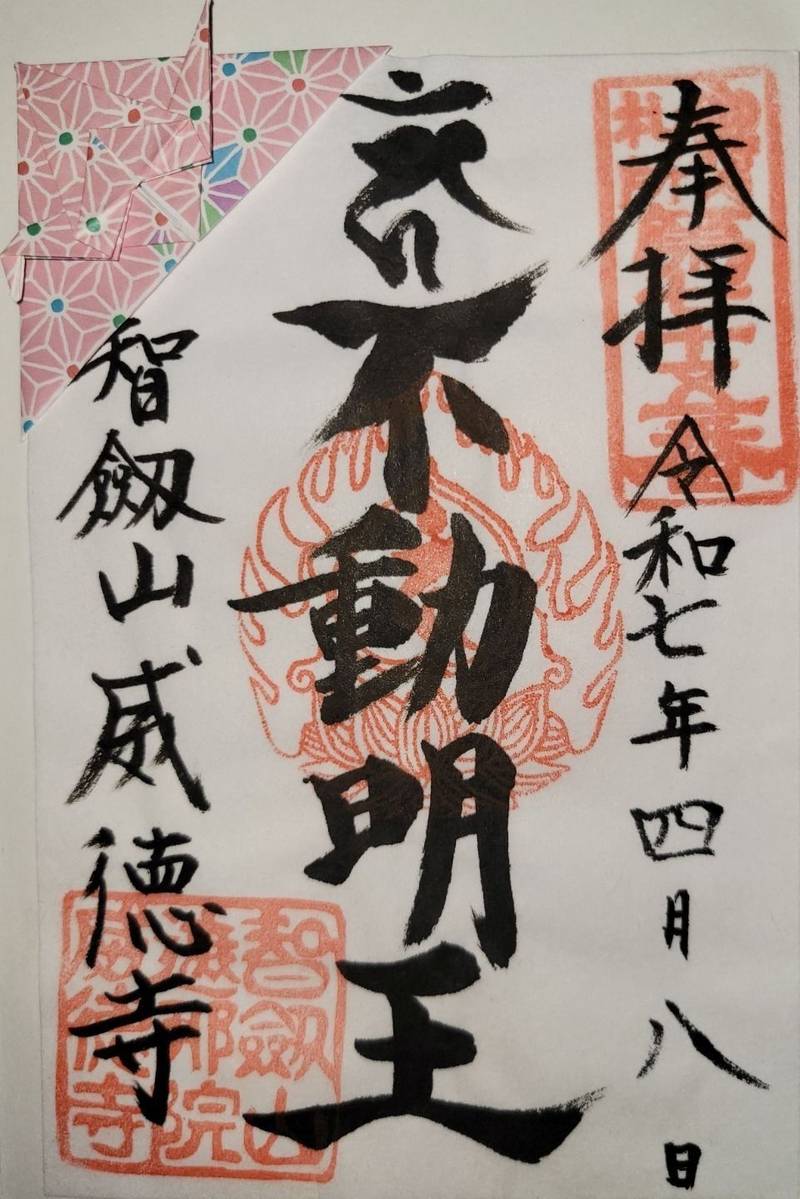 奉拝 令和七年四月八日
不動明王
智劔山 威徳寺
智劔山
遮那院
威徳寺